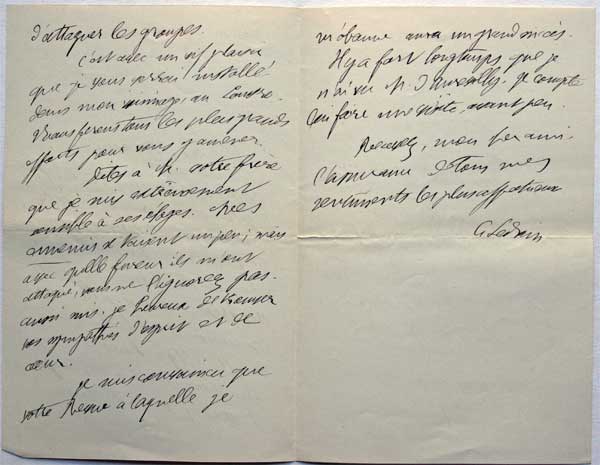 d'attaquer les groupes.
C'est avec un vif plaisir
que je vous verrai installé
dans mon voisinage, au Louvre.
Nous ferons tous les plus grands
efforts pour vous y amener.
Dites à M. votre frère
que je suis extrêmement
sensible à ses éloges. Mes
ennemis se taisent un peu ; mais
avec quelle fureur ils m'ont
attaqué, vous ne l'ignorez pas.
aussi suis-je heureux de trouver
vos sympathies d'esprit et de
cœur.
je suis convaincu que
votre Revue à laquelle je
aura un grand succès.
Il y a fort longtemps que je
n'ai vu M. je compte
lui faire une visite, avant peu.
Recevez, mon cher ami
l'assurance de tous mes
sentiments les plus affectueux